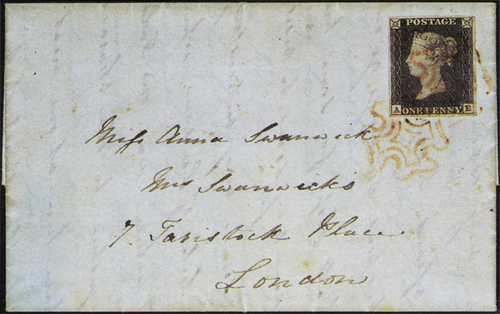 POSTAGE
A ONE PENNY E
Miss Anna Swanwick
Mrs Swanwick's
7. Tavistock Place
London